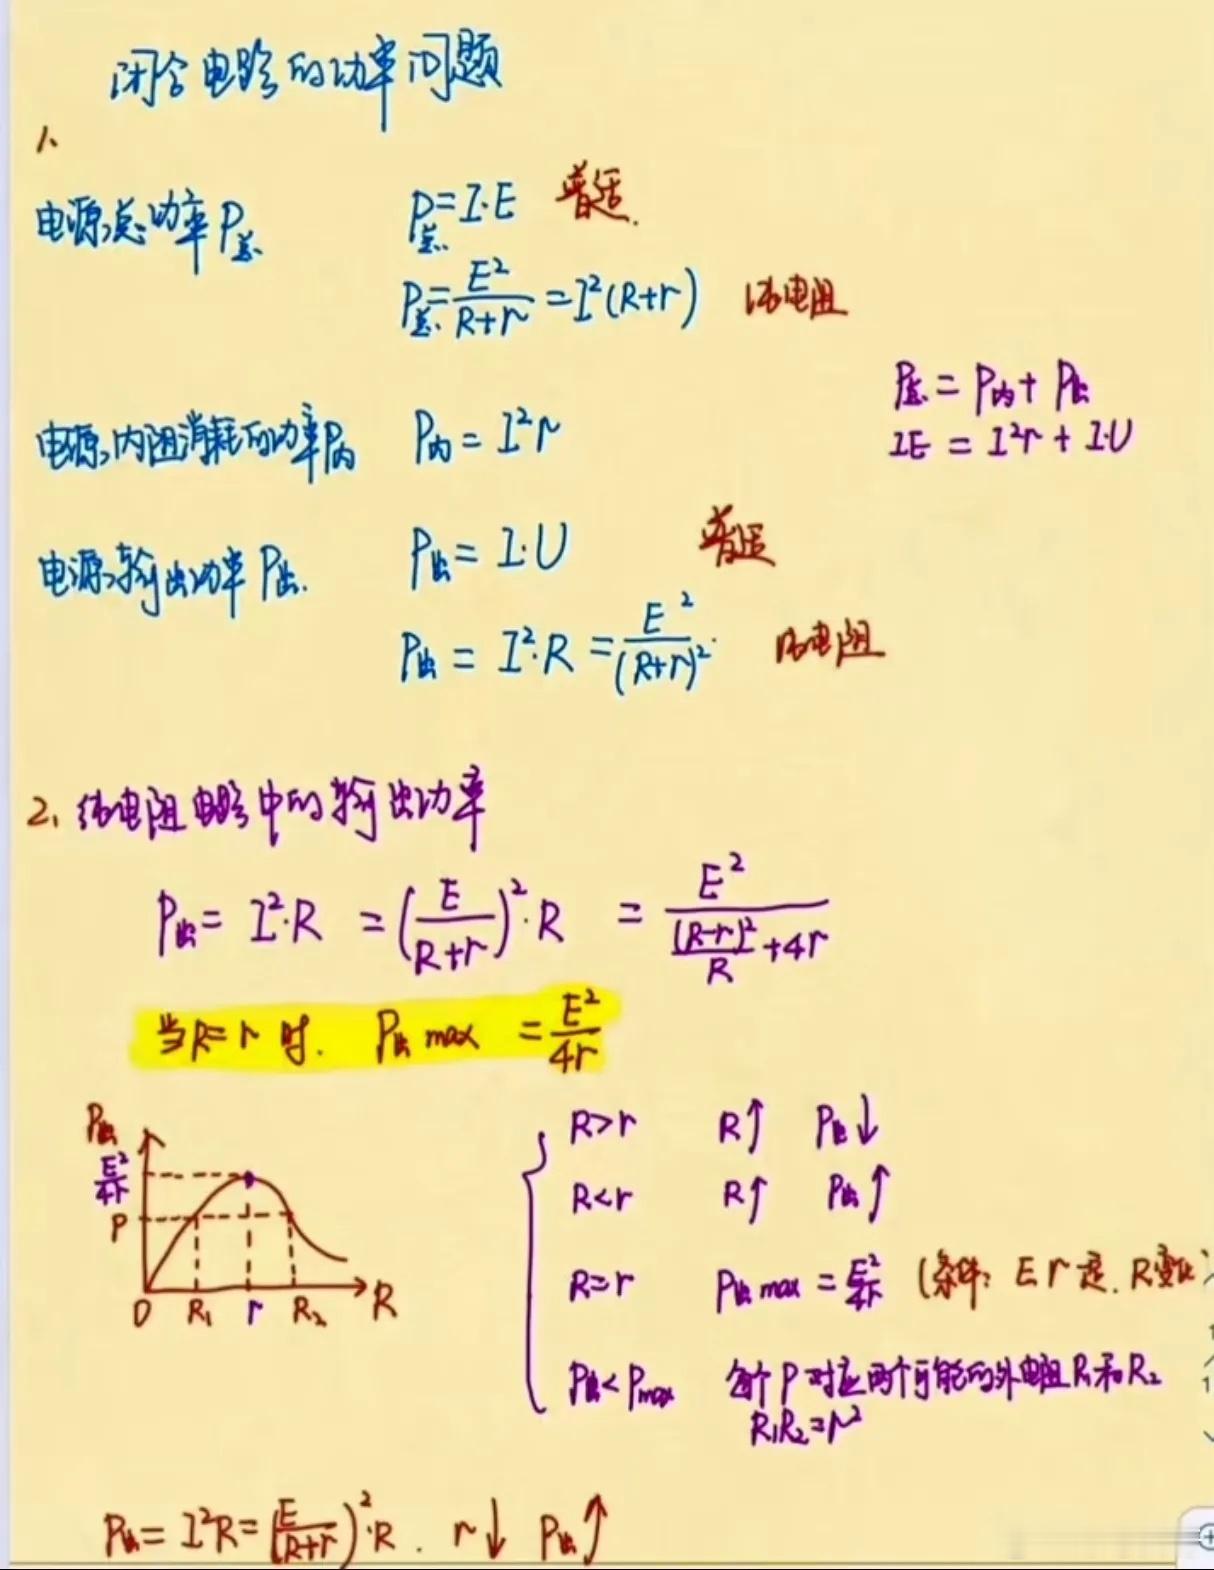 闭合电路的功率问题
1、
电源总功率P总 P总=I·E 普适.
P总=E²/(R+r)=I²(R+r) 纯电阻
P总=P内+P出
电源内阻消耗的功率P内 P内=I²r
IE=I²r+I·U
电源输出功率P出. P出=I·U 普适
P出=I²·R=E²/(R+r)²· 纯电阻
2、纯电阻电路中的输出功率
P出=I²·R=(E/(R+r))²·R=E²/((R-r)²/R+4r)
当R=r时. P出max=E²/4r
P出
E²/4r
P
O R₁ r R₂ R
R>r R↑ P出↓
R<r R↑ P出↑
R=r P出max=E²/4r (条件:E r 定.R变化)
P出<Pmax 每个P对应两个可能的外电阻R₁和R₂
R₁R₂=r²
P出=I²R=(E/(R+r))²·R. r↓ P出↑